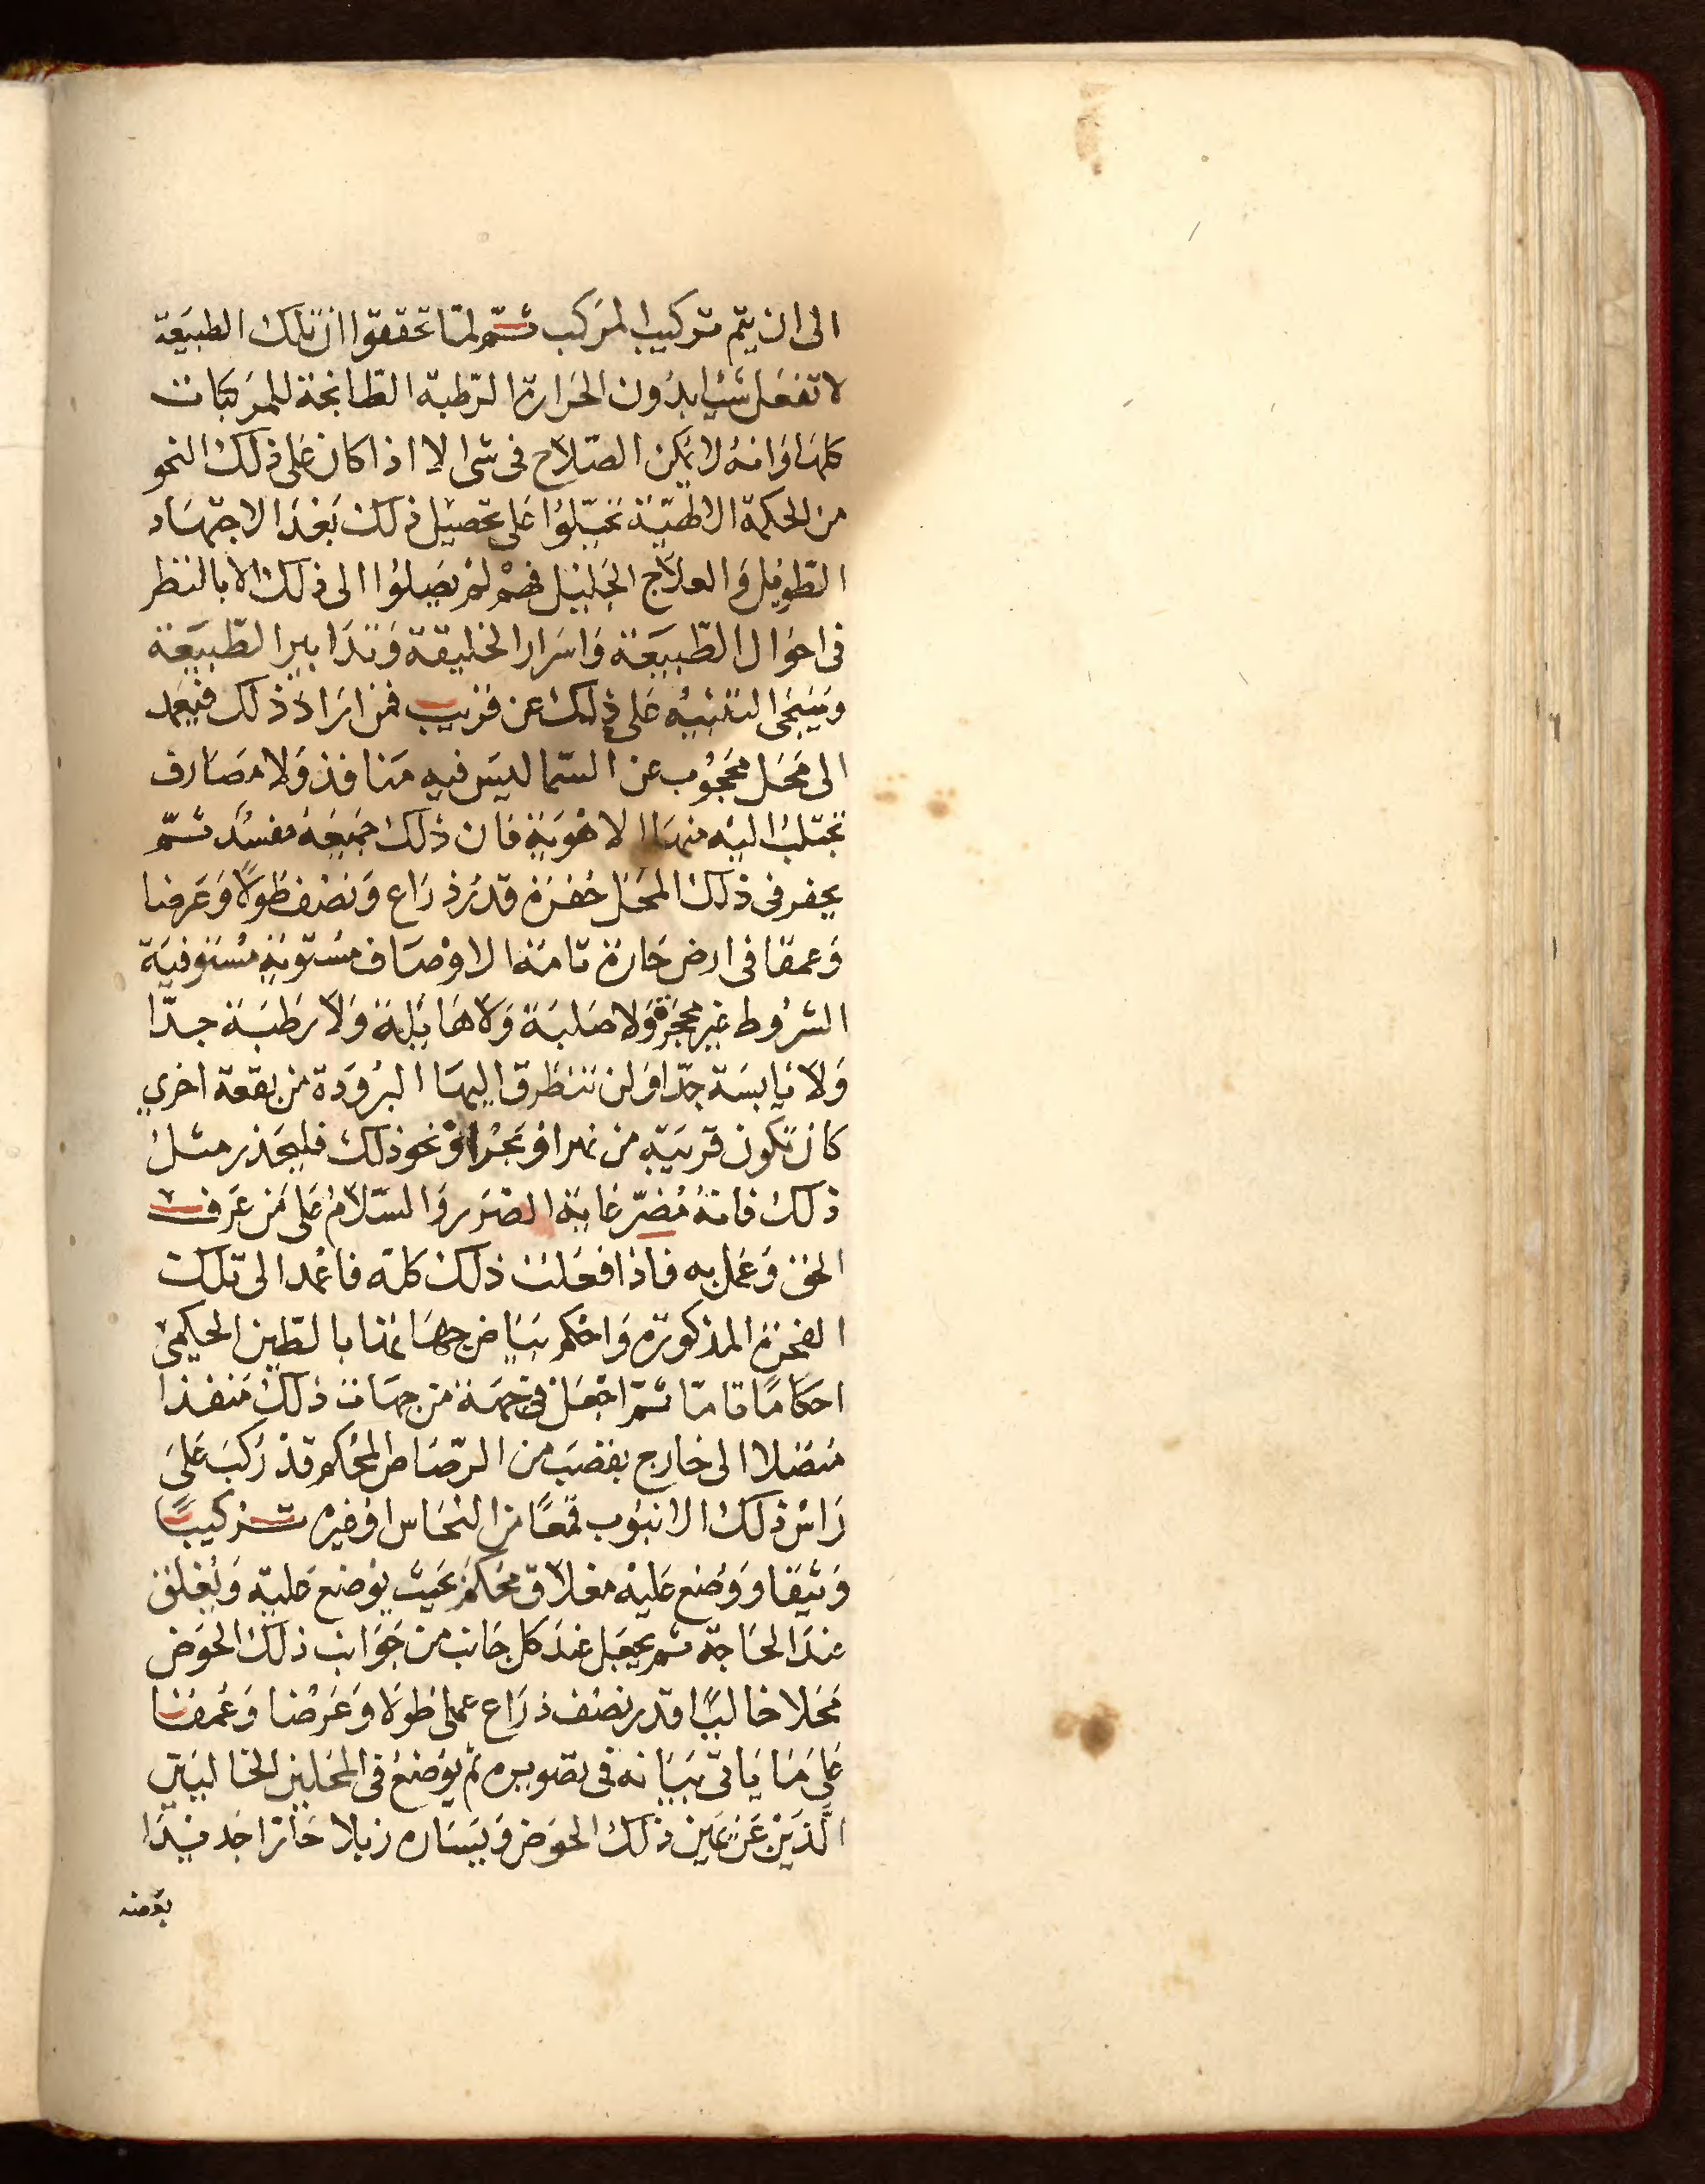 الى ان يتم تركيب المركب ثم لما تحققوا ان تلك الطبيعة
لا تفعل شيا بدون الحرارة الرطبة الطابخة للمركبات
كلها وانه لا يمكن الصلاح فى شى الا اذا كان على ذلك النحو
من الحكمة الالهية تحيلوا على تحصيل ذلك بعد الاجتهاد
الطويل والعلاج الجليل فهم لم يصلوا الى ذلك الا بالنظر
فى احوال الطبيعة واسرار الخليقة وتدابير الطبيعة
وسيجى التنبيه على ذلك عن قريب فمن اراد ذلك فيعمد
الى محل محجوب عن السما ليس فيه منافذ ولا مصارف
تجتلب اليه منها الاهوية فان ذلك جميعه مفسد ثم
يحفر فى ذلك المحل حفرة قدر ذراع ونصف طولا وعرضا
وعمقا فى ارض حارة تامة الاوصاف مستوية مستوفية
الشروط غير محجرة ولا صلبة ولا هايلة ولا رطبة جدا
ولا يابسة جدا ولن تتطرق اليها البرودة من بقعة اخرى
كان تكون قريبة من نهر او بحر او نحو ذلك فليحذر مثل
ذلك فانه مضر غاية الضرر والسلام على من عرف
الحق وعمل به فاذا فعلت ذلك كله فاعمد الى تلك
الفحرة المذكورة واحكم بياض جهاتها بالطين الحكيمى
احكاما تاما ثم اجعل فى جهة من جهات ذلك منفذا
متصلا الى خارج بقصب من الرصاص المحكم قد ركب على
راس ذلك الانبوب قمعا من النحاس او غيره تركيبا
وثيقا ووضع عليه مغلاق محكم بحيث يوضع عليه ويغلق
عند الحاجة ثم يجعل عند كل جانب من جوانب ذلك الحوض
محلا خاليا قدر نصف ذراع عملى طولا وعرضا وعمقا
على ما ياتى بيانه فى تصويره ثم يوضع فى المحلين الخاليين
الذين عن يمين ذلك الحوض ويساره زبلا حارا جديدا
بعضه